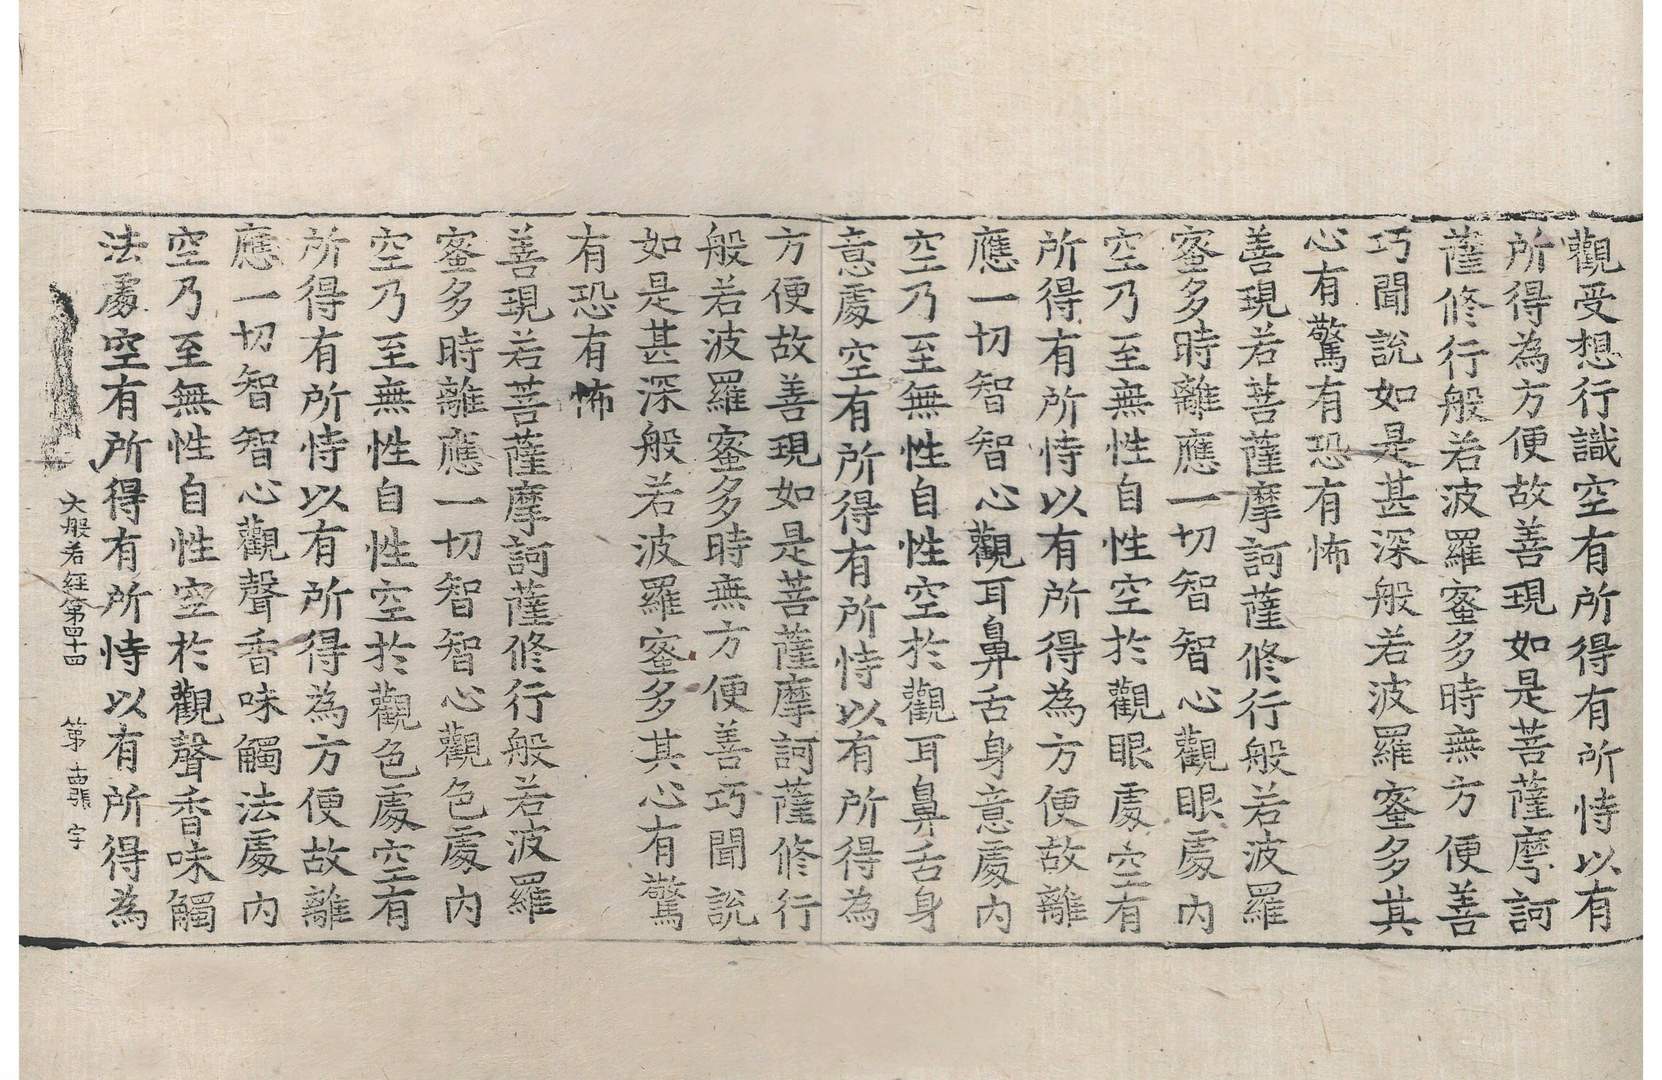 觀受想行識空有所得有所恃以有
所得為方便故善現如是菩薩摩訶
薩修行般若波羅蜜多時無方便善
巧聞說如是甚深般若波羅蜜多其
心有驚有恐有怖
善現若菩薩摩訶薩修行般若波羅
蜜多時離應一切智智心觀眼處內
空乃至無性自性空於觀眼處空有
所得有所恃以有所得為方便故離
應一切智智心觀耳鼻舌身意處內
空乃至無性自性空於觀耳鼻舌身
意處空有所得有所恃以有所得為
方便故善現如是菩薩摩訶薩修行
般若波羅蜜多時無方便善巧聞說
如是甚深般若波羅蜜多其心有驚
有恐有怖
善現若菩薩摩訶薩修行般若波羅
蜜多時離應一切智智心觀色處內
空乃至無性自性空於觀色處空有
所得有所恃以有所得為方便故離
應一切智智心觀聲香味觸法處內
空乃至無性自性空於觀聲香味觸
法處空有所得有所恃以有所得為
大般若經第四十四 第 張 字